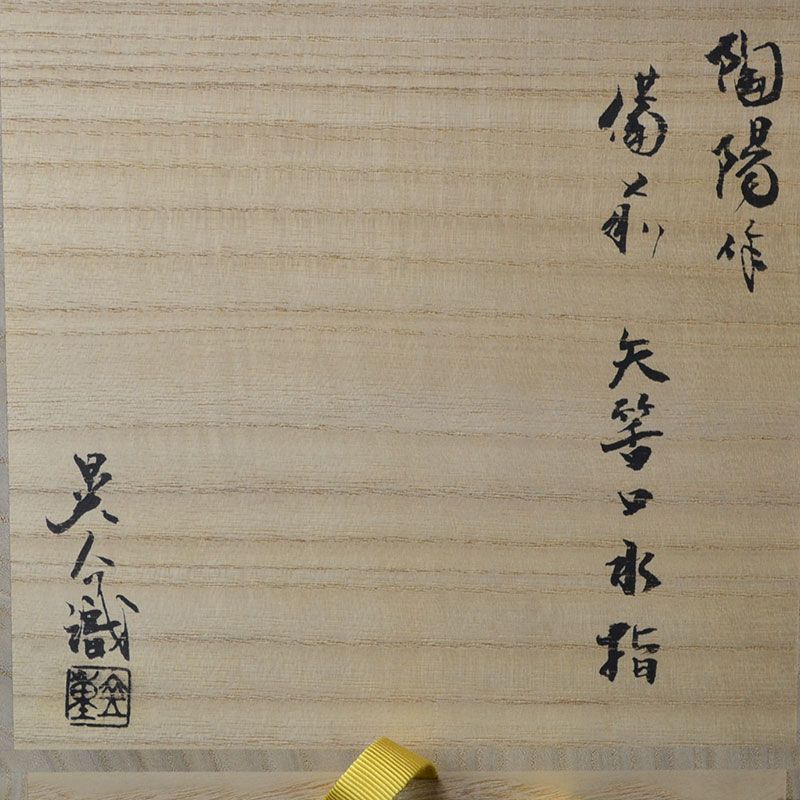 陶陽作
備前 矢筈口水指
晃介識